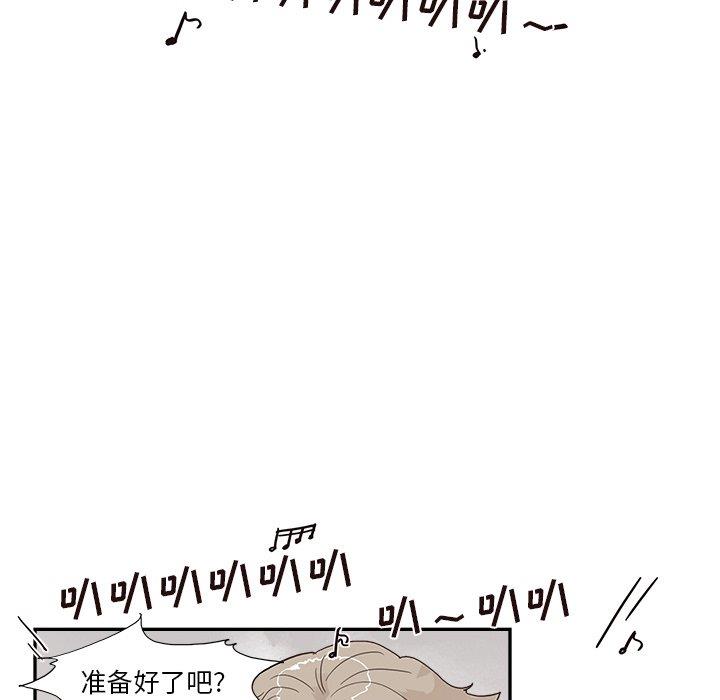 叭叭叭叭~
叭叭叭叭叭叭
叭~叭叭
准备好了吧?